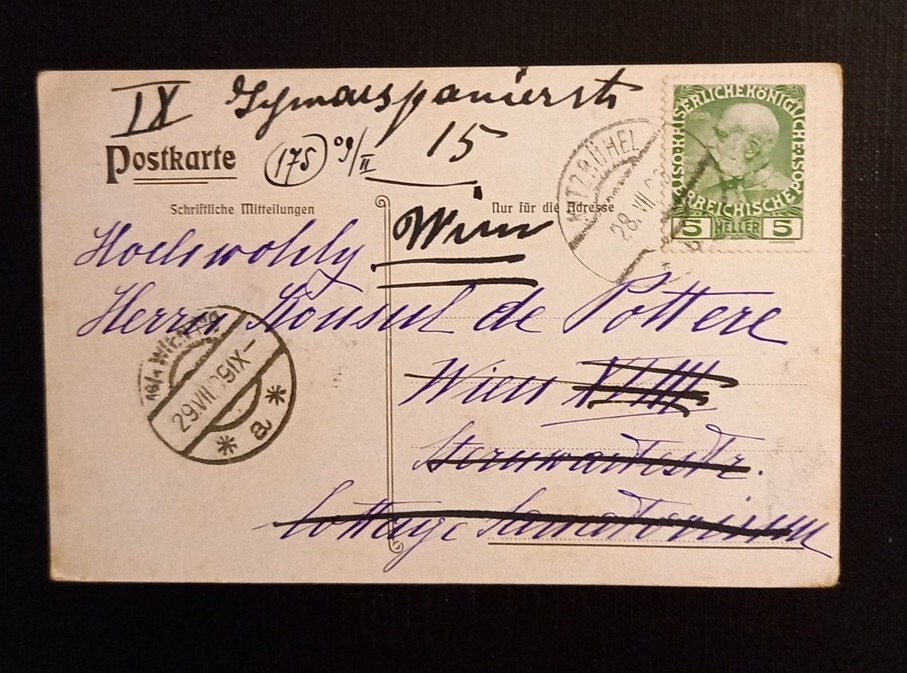 IX Gymnaspanierstr
15
Postkarte
175 09/II
Schriftliche Mitteilungen
Nur für die Adresse
Wien
KITZBÜHEL
28.VII.
KAISERLICHE KÖNIGLICHE
ÖSTERREICHISCHE POST
1908
5 HELLER 5
Hochwohlg
Herrn Konsul de Pottere
Wien XVIII
Sternwartestr.
Cottage Sanatorium
WIEN
29.VII. 9 IX-
* a *